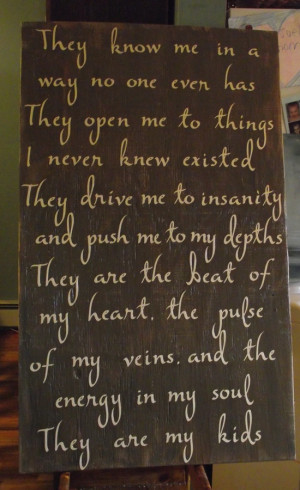 They know me in a
way no one ever has
They open me to things
I never knew existed
They drive me to insanity
and push me to my depths
They are the beat of
my heart. the pulse
of my veins. and the
energy in my soul
They are my kids